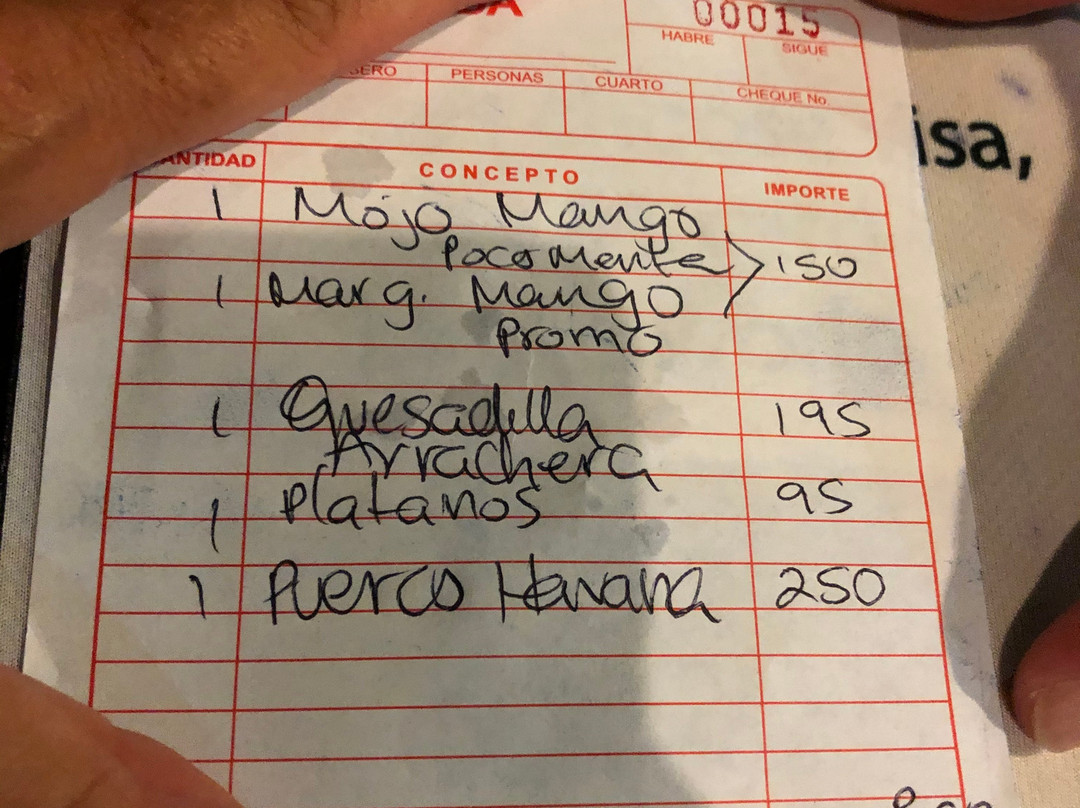 00015
HABRE SIGUE
PERSONAS CUARTO CHEQUE No.
isa,
CONCEPTO IMPORTE
1 Mojo Mango
Poco Menta 150
1 Marg. Mango
Promo
1 Quesadilla 195
Arrachera
1 Platanos 95
1 Puerco Havana 250